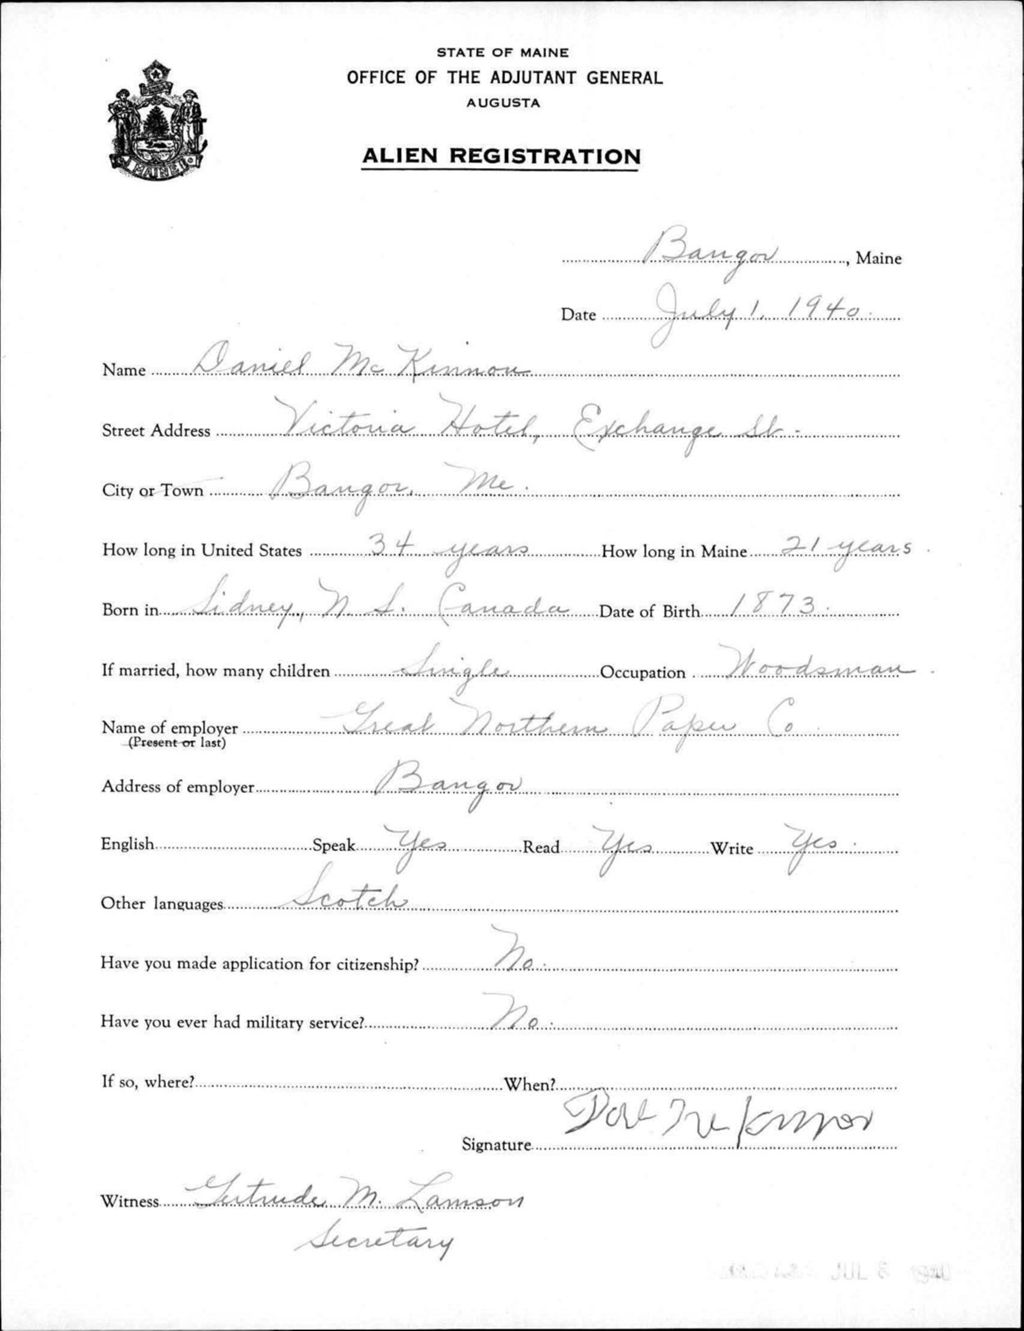 STATE OF MAINE
OFFICE OF THE ADJUTANT GENERAL
AUGUSTA
MAINE
ALIEN REGISTRATION
Bangor, Maine
Date July 1, 1940.
Name Daniel McKinnon
Street Address Victoria Hotel, Exchange St.
City or Town Bangor, Me.
How long in United States 34 years How long in Maine 21 years.
Born in Sidney, N S. Canada Date of Birth 1873.
If married, how many children Single Occupation Woodsman.
Name of employer Great Northern Paper Co.
(Present or last)
Address of employer Bangor
English Speak Yes Read Yes Write Yes.
Other languages Scotch
Have you made application for citizenship? No.
Have you ever had military service? No.
If so, where? When?
Signature
Witness Gertrude M. Lamson
Secretary
JUL 3 1940